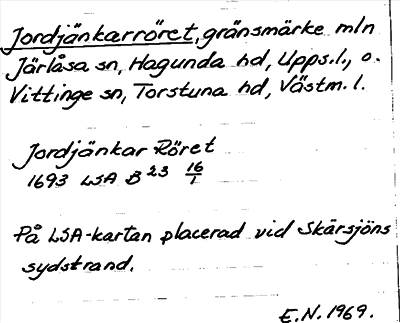 Jordjänkarröret, gränsmärke mln
Järlåsa sn, Hagunda hd, Upps.l., o.
Vittinge sn, Torstuna hd, Västm.l.
Jordjänkar Röret
1693 LSA B 23 16/1
På LSA-kartan placerad vid Skärsjöns
sydstrand.
E.N. 1969.